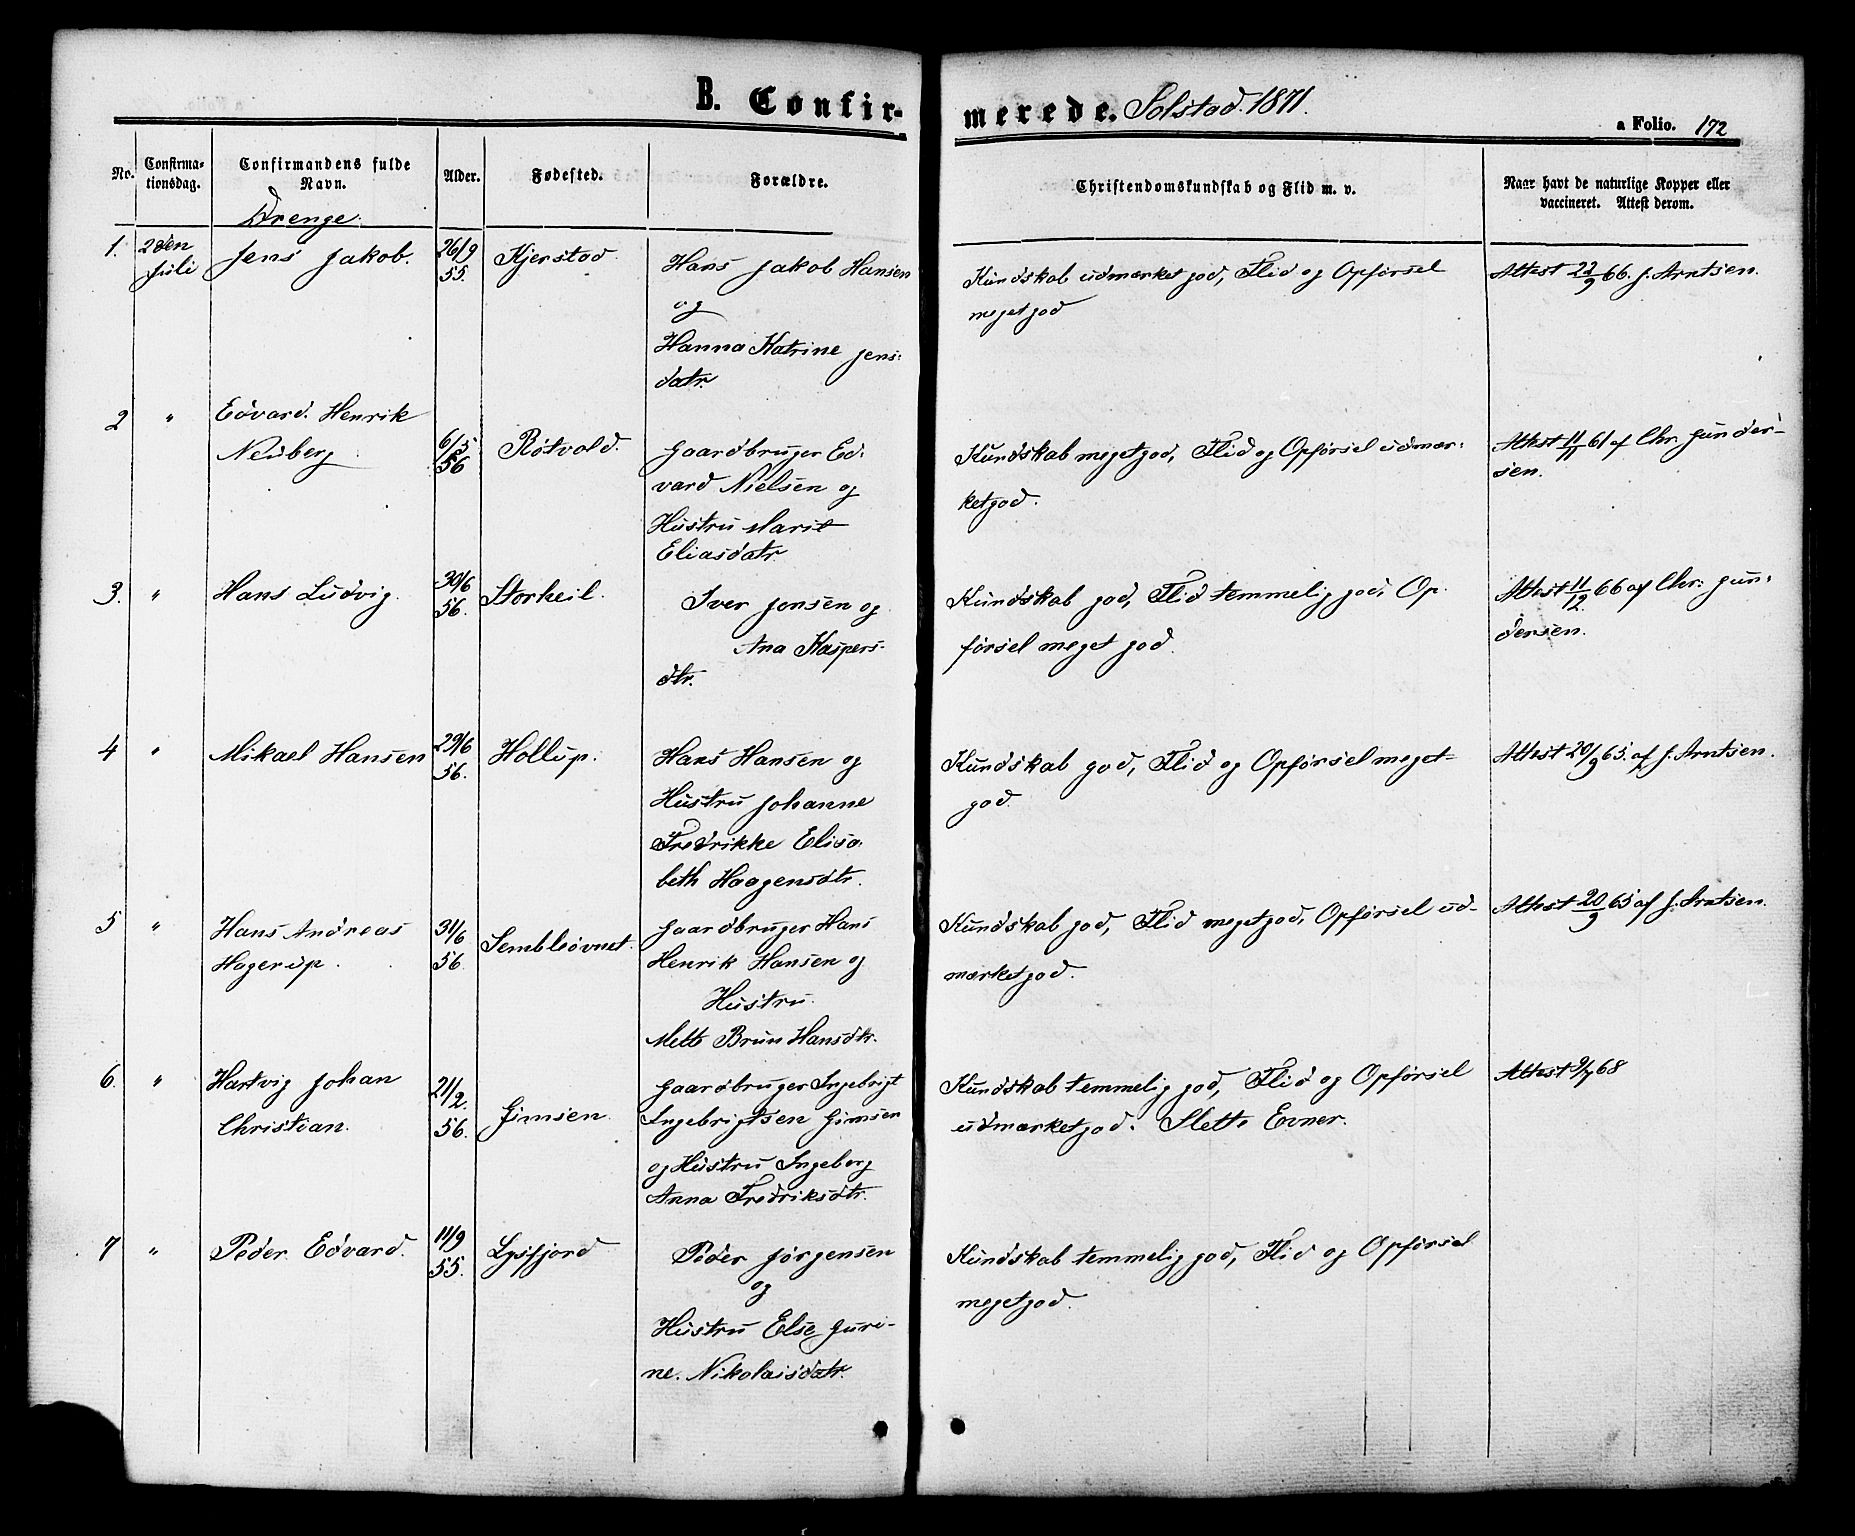 B. Confirmerede. Solstad. 1871.
a Folio. 172
No.
Confirma-
tionsdag.
Confirmandens fulde
Navn.
Alder.
Fødested.
Forældre.
Christendomskundskab og Flid m. v.
Naar havt de naturlige Kopper eller
vaccineret. Attest derom.
Drenge.
1.
2den
Juli
Jens Jakob.
26/9
55.
Kjerstad.
Hans Jakob Hansen
og
Hanna Katrine Jens-
datr.
Kundskab udmærket god, Flid og Opførsel
meget god
Attest 22/9 66. J. Arntsen.
2
"
Edvard. Henrik
Neuberg.
6/5
56
Røtvold.
Gaardbruger Ed-
vard Nielsen og
Hustru Marit
Eliasdatr.
Kundskab meget god, Flid og Opførsel udmær-
ket god.
Attest 11/11 61 af Chr. Gunder-
sen.
3.
"
Hans Ludvig.
30/6
56.
Storheil.
Iver Jonsen og
Ana Kaspers-
dtr.
Kundskab god, Flid temmelig god, Op-
førsel meget god.
Attest 11/12 66 af Chr: Gun-
dersen.
4
"
Mikael Hansen
29/6
56.
Hollup.
Hans Hansen og
Hustru Johanne
Fredrikke Elisa-
beth Haagensdtr.
Kundskab god, Flid og Opførsel meget-
god.
Attest 20/9 65. af J. Arntsen.
5
"
Hans Andreas
Hagerup.
56.
Gaardbruger Hans
Henrik Hansen og
Hustru.
Mette Brun Hansdtr.
Kundskab god, Flid meget god, Opførsel ud-
mærket god.
Attest 20/9 65 af J. Arntsen.
6.
"
Hartvig Johan
Christian.
21/2.
56.
Gimsen.
Gaardbruger Ingebrigt
Ingebrigtsen Gimsen
og Hustru Ingeborg
Anna Fredriksdtr.
Kundskab temmelig god, Flid og Opførsel
udmærket god. Slette Evner.
Attest 9/7 68
7
"
Peder Edvard.
11/9
55.
Lysfjord
Peder Jørgensen
og
Hustru Else Guri-
ne. Nikolaisdatr.
Kundskab temmelig god, Flid og Opførsel
meget god.